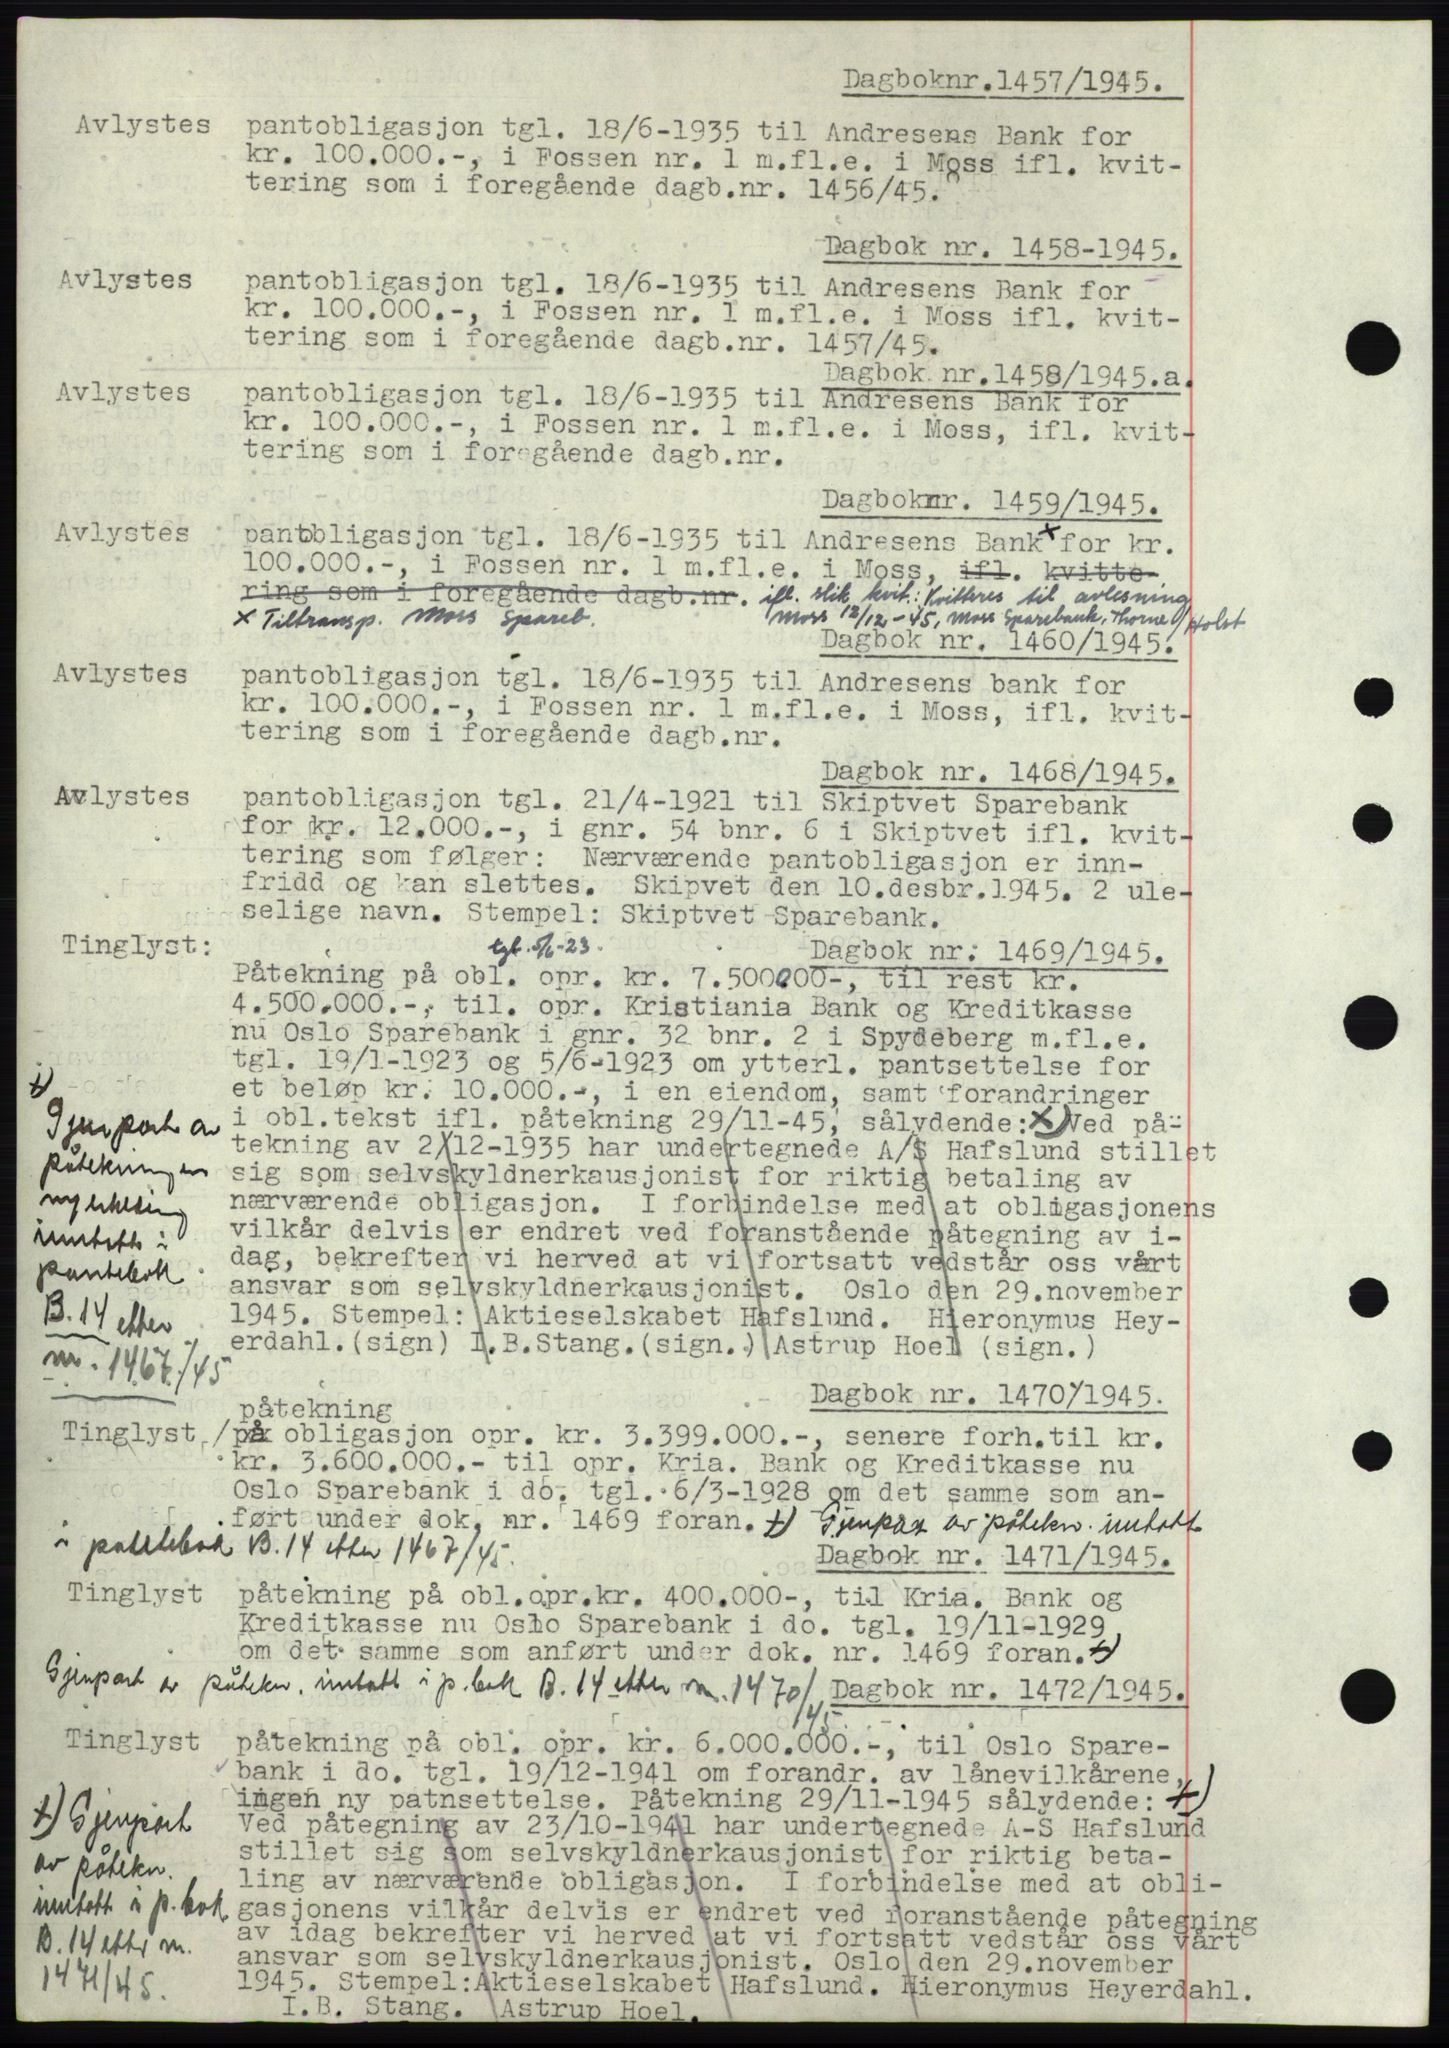 Dagboknr.1457/1945.
Avlystes pantobligasjon tgl. 18/6-1935 til Andresens Bank for
kr. 100.000.-, i Fossen nr. 1 m.fl.e. i Moss ifl. kvit-
tering som i foregående dagb.nr. 1456/45.
Dagbok nr. 1458-1945.
Avlystes pantobligasjon tgl. 18/6-1935 til Andresens Bank for
kr. 100.000.-, i Fossen nr. 1 m.fl.e. i Moss ifl. kvit-
tering som i foregående dagb.nr. 1457/45.
Dagbok nr.1458/1945.a.
Avlystes pantobligasjon tgl. 18/6-1935 til Andresens Bank for
kr. 100.000.-, i Fossen nr. 1 m.fl.e. i Moss, ifl. kvit-
tering som i foregående dagb.nr.
Dagboknr. 1459/1945.
Avlystes pantobligasjon tgl. 18/6-1935 til Andresens Bank x for kr.
100.000.-, i Fossen nr. 1 m.fl.e. i Moss, ifl. kvitte-
ring som i foregående dagb.nr. ifl. slik kvit.: Kvitteres til avlesning
x Tiltransp. Moss Spareb. Moss 12/12-45, Moss Sparebank, Thorne / Holst
Dagbok nr. 1460/1945.
Avlystes pantobligasjon tgl. 18/6-1935 til Andresens bank for
kr. 100.000.-, i Fossen nr. 1 m.fl.e. i Moss, ifl. kvit-
tering som i foregående dagb.nr.
Dagbok nr. 1468/1945.
Avlystes pantobligasjon tgl. 21/4-1921 til Skiptvet Sparebank
for kr. 12.000.-, i gnr. 54 bnr. 6 i Skiptvet ifl. kvit-
tering som følger: Nærværende pantobligasjon er inn-
fridd og kan slettes. Skipvet den 10.desbr.1945. 2 ule-
selige navn. Stempel: Skiptvet Sparebank.
Tinglyst: tgl. 5/6-23. Dagbok nr: 1469/1945.
Påtekning på obl. opr. kr. 7.500000-, til rest kr.
4.500.000.-, til. opr. Kristiania Bank og Kreditkasse
nu Oslo Sparebank i gnr. 32 bnr. 2 i Spydeberg m.fl.e.
tgl. 19/1-1923 og 5/6-1923 om ytterl. pantsettelse for
et beløp kr. 10.000.-, i en eiendom, samt forandringer
i obl.tekst ifl. påtekning 29/11-45, sålydende: x) Ved på-
tekning av 2/12-1935 har undertegnede A/S Hafslund stillet
sig som selvskyldnerkausjonist for riktig betaling av
nærværende obligasjon. I forbindelse med at obligasjonens
vilkår delvis er endret ved foranstående påtegning av i-
dag, bekrefter vi herved at vi fortsatt vedstår oss vårt
ansvar som selvskyldnerkausjonist. Oslo den 29.november
1945. Stempel: Aktieselskabet Hafslund. Hieronymus Hey-
erdahl.(sign) I.B.Stang.(sign.) Astrup Hoel (sign.)
x)
Gjenpart av
påtekningen
inntatt i
pantebok
B.14 etter
nr. 1467/45
Dagbok nr. 1470/1945.
påtekning
Tinglyst / på obligasjon opr. kr. 3.399.000.-, senere forh.til kr.
kr. 3.600.000.- til opr. Kria. Bank og Kreditkasse nu
Oslo Sparebank i do. tgl. 6/3-1928 om det samme som an-
ført under dok. nr. 1469 foran. x) Gjenpart av påtekn. inntatt
i pantebok B.14 etter 1467/45.
Dagbok nr. 1471/1945.
Tinglyst påtekning på obl.opr.kr. 400.000-, til Kria. Bank og
Kreditkasse nu Oslo Sparebank i do. tgl. 19/11-1929
om det samme som anført under dok. nr. 1469 foran. x)
Gjenpart av påtekn. inntatt i p.bok B.14 etter nr. 1470/45
Dagbok nr. 1472/1945.
Tinglyst påtekning på obl. opr. kr. 6.000.000.-, til Oslo Spare-
bank i do. tgl. 19/12-1941 om forandr. av lånevilkårene,
ingen ny patnsettelse. Påtekning 29/11-1945 sålydende: x)
Ved påtegning av 23/10-1941 har undertegnede A-S Hafslund
stillet sig som selvskyldnerkausjonist for riktig beta-
ling av nærværende obligasjon. I forbindelse med at obli-
gasjonens vilkår delvis er endret ved foranstående påtegning
av idag bekrefter vi herved at vi fortsatt vedstår oss vårt
ansvar som selvskyldnerkausjonist. Oslo den 29.november
1945. Stempel:Aktieselskabet Hafslund. Hieronymus Heyerdahl.
I.B. Stang. Astrup Hoel.
x) Gjenpart
av påtekn.
inntatt i p.bok
B.14 etter nr.
1471/45.